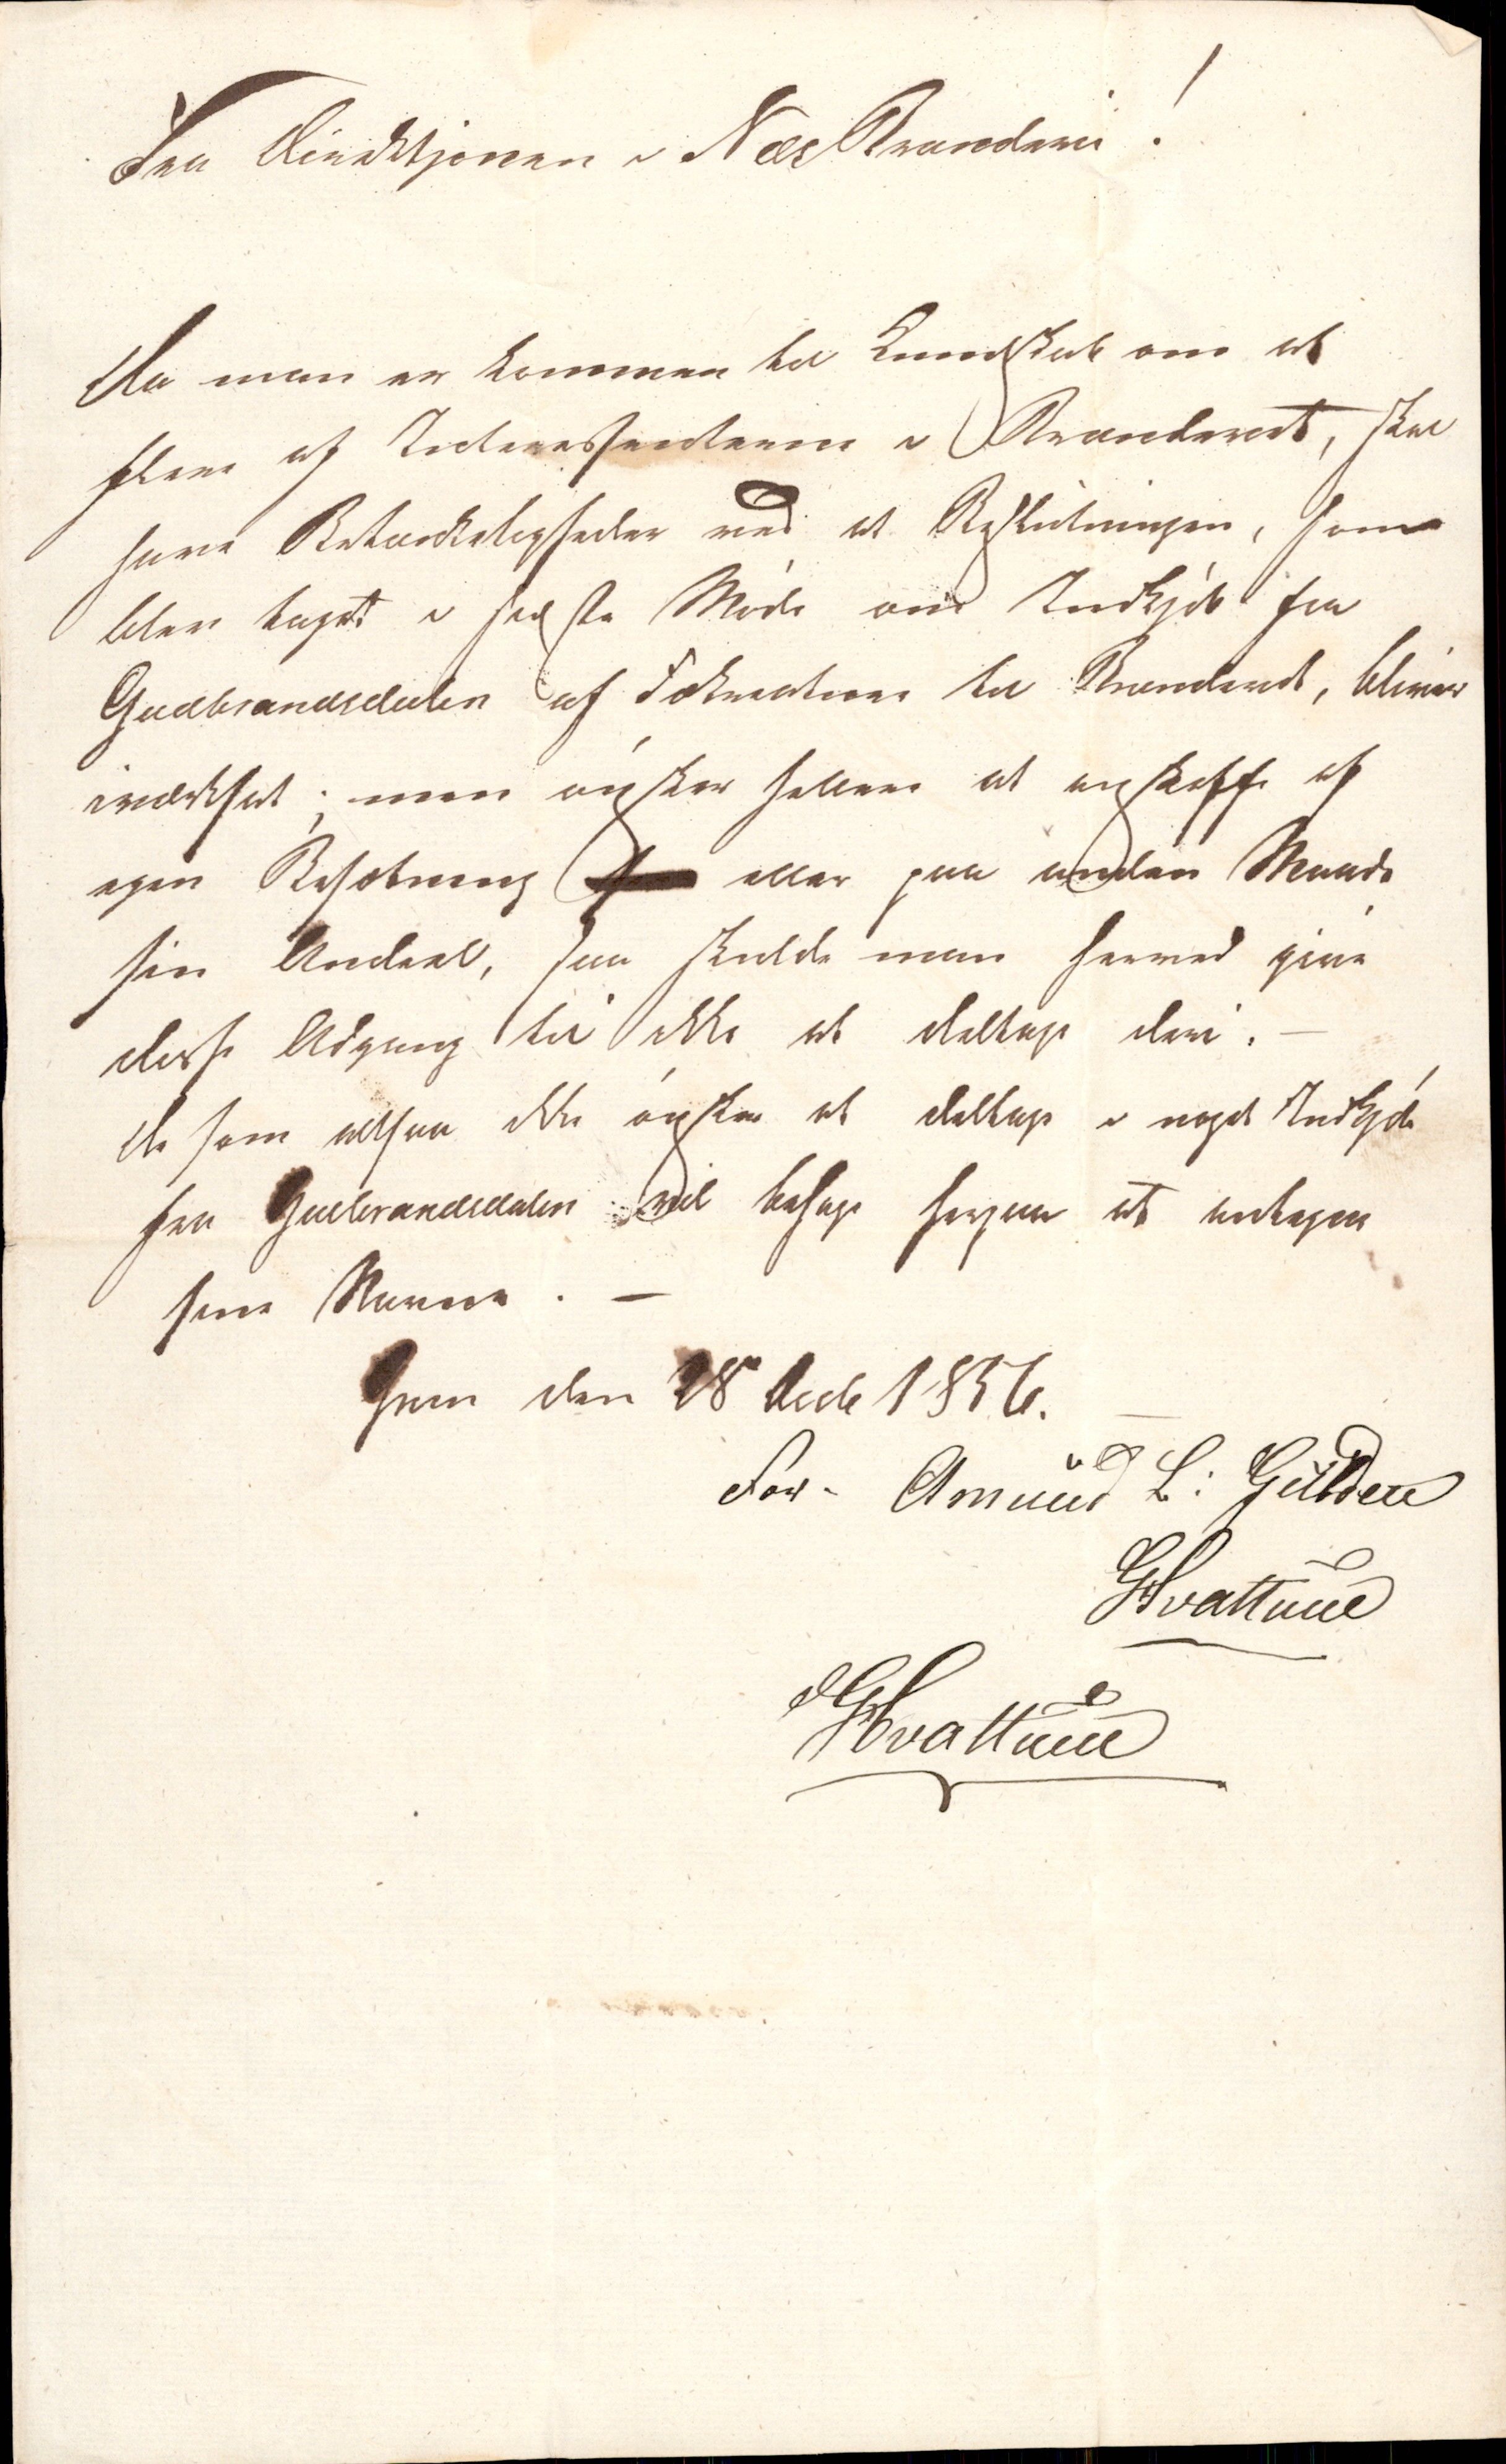 Fra Direktjonen i Næs Brænderi!
Da man er kommen til Kundskab om at
flere af Interessenterne i Brænderiet, skal
have Betænkeligheder ved at Beslutningen, som
blev taget i sidste Møde om Indkjøb fra
Gudbrandsdalen af Fækreature til Brænderiet, bliver
iværksat; men ønsker hellere at anskaffe af
egen Besætning eller paa anden Maade
sin Andeel, saa skulde man herved give
disse Adgang til ikke at deltage deri. —
De som altsaa ikke ønsker at deltage i noget Indkjøb
fra Gudbrandsdalen vil behage herpaa at antegne
sine Navne. —
den 28de Decb 1856.
For Amund L: Gilden
GHvattum
GHvattum